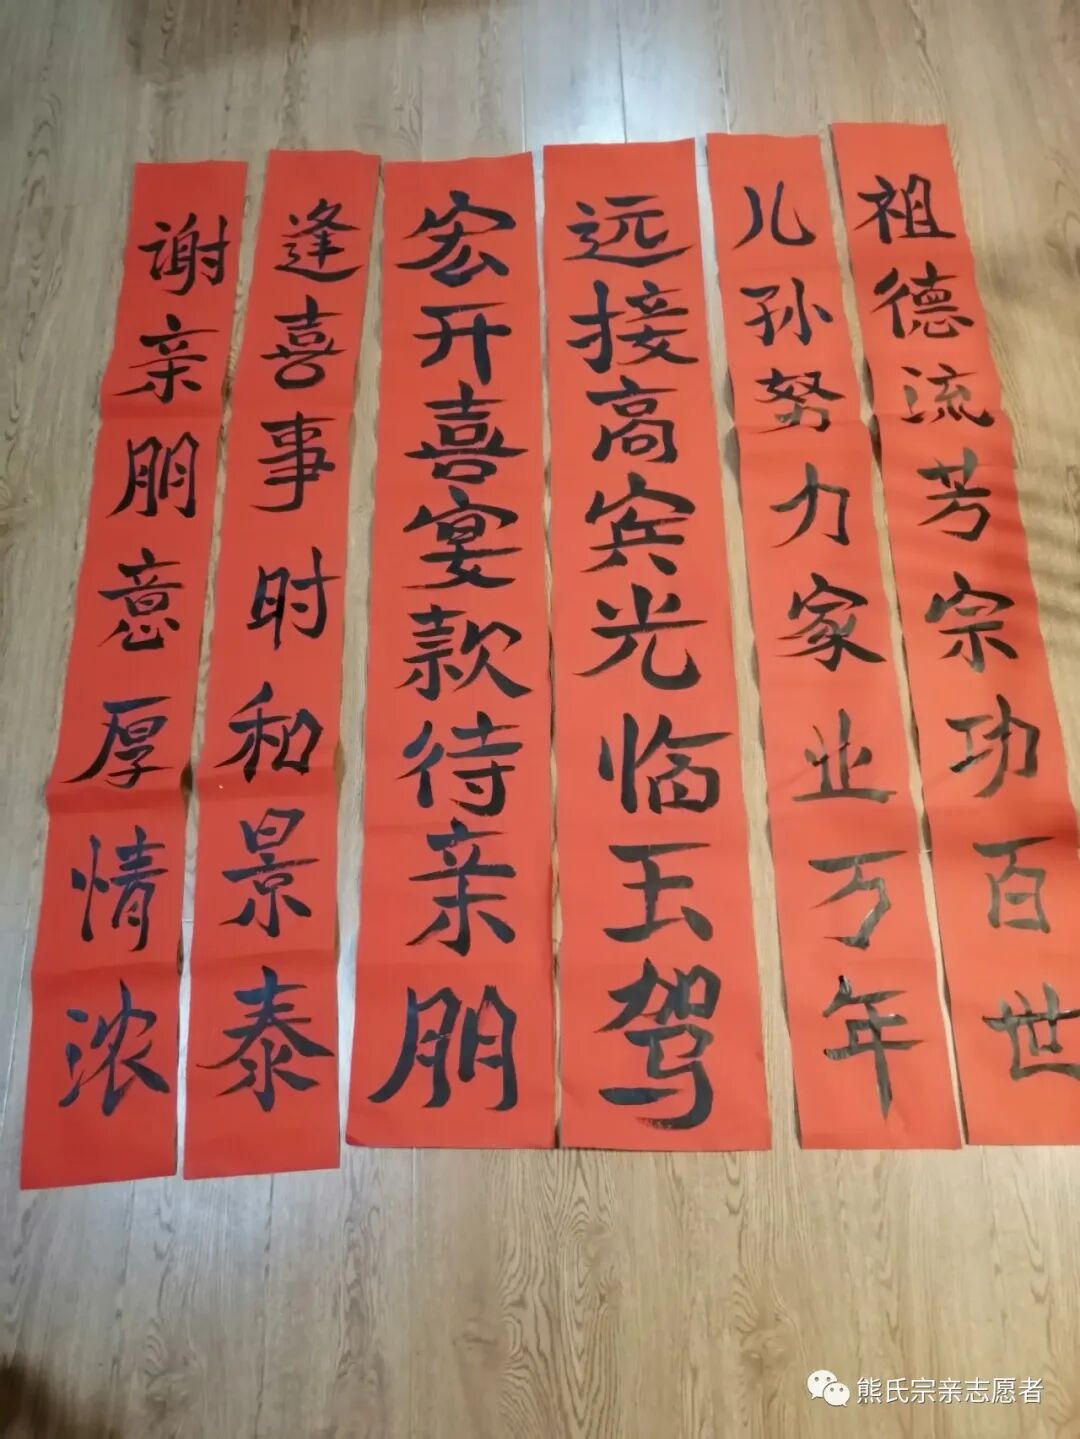 祖德流芳宗功百世
儿孙努力家业万年
远接高宾光临玉驾
宏开喜宴款待亲朋
逢喜事时和景泰
谢亲朋意厚情浓
熊氏宗亲志愿者